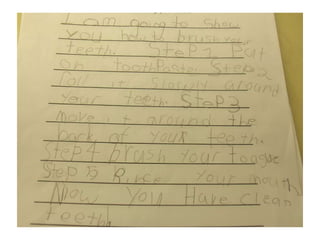 I am going to Show
you how to brush your
teeth. Step 1 Put
on toothPaste. Step 2
roll it slowly around
your teeth. SteP 3
move it around the
back of your teeth.
Step 4 brush your tongue
Step 5 Rince your mouth
Now you Have clean
teeth.